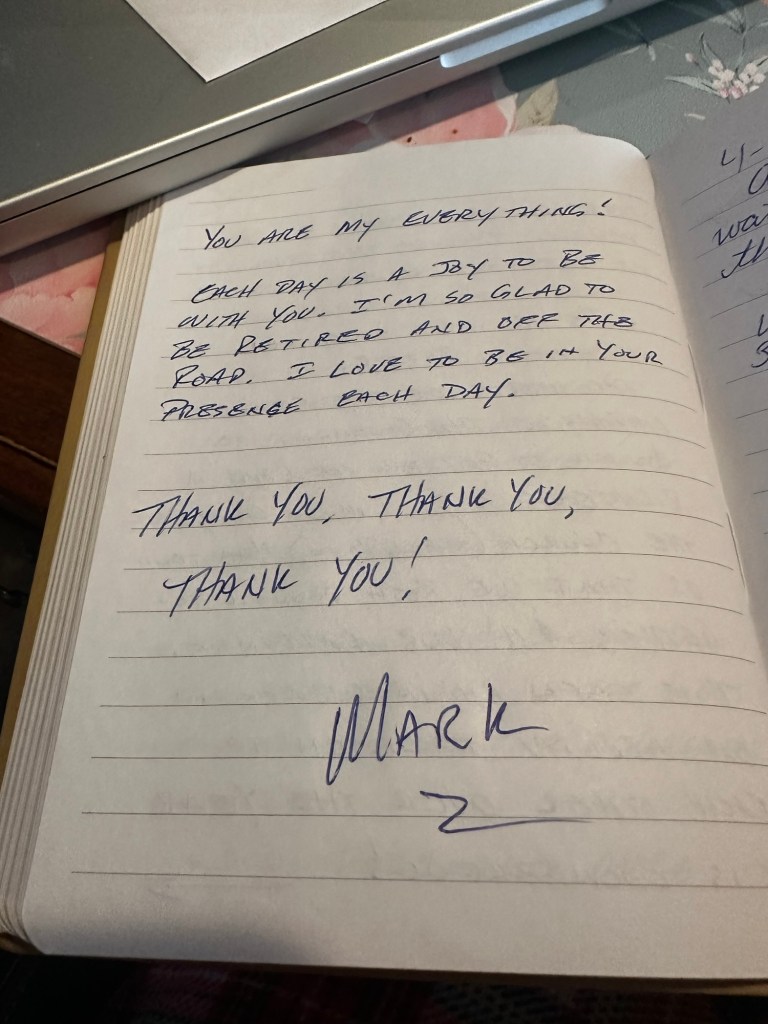 YOU ARE MY EVERYTHING!
EACH DAY IS A JOY TO BE
WITH YOU. I'M SO GLAD TO
BE RETIRED AND OFF THE
ROAD. I LOVE TO BE IN YOUR
PRESENCE EACH DAY.
THANK YOU, THANK YOU,
THANK YOU!
MARK
4-